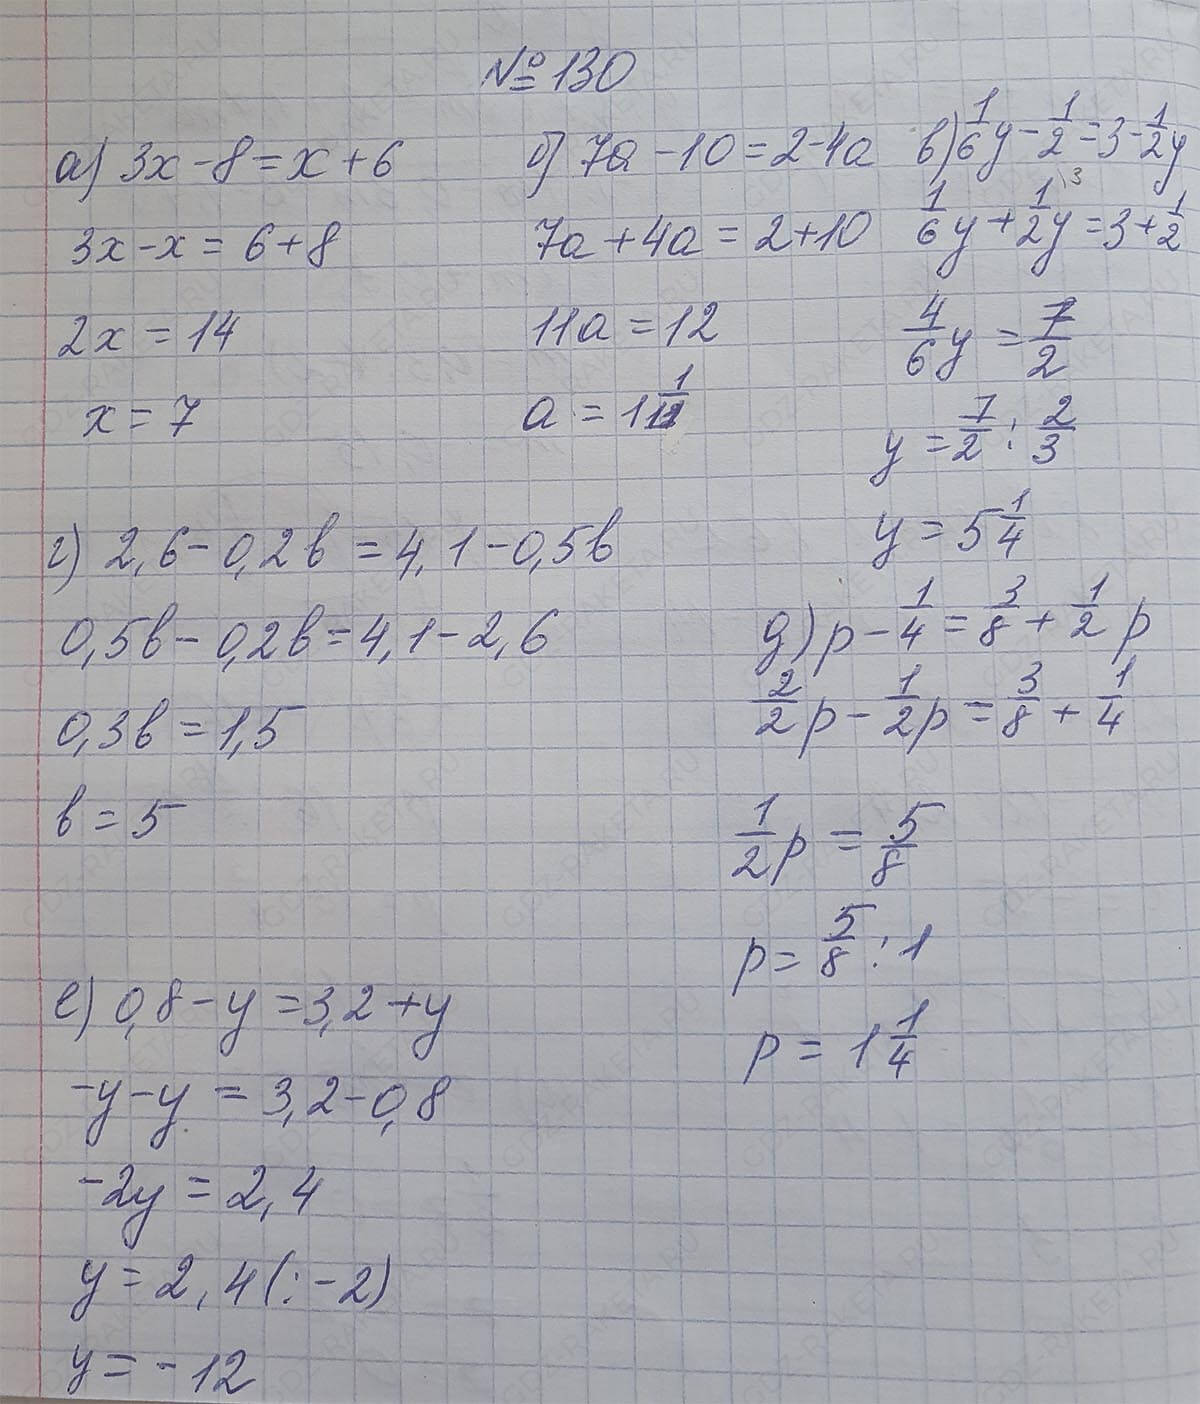 №130
а) 3x - 8 = x + 6
3x - x = 6 + 8
2x = 14
x = 7
б) 7a - 10 = 2 - 4a
7a + 4a = 2 + 10
11a = 12
a = 1 1/11
в) 1/6 y - 1/2 = 3 - 1/2 y
1/6 y + 1/2 \3 y = 3 + 1/2
4/6 y = 7/2
y = 7/2 : 2/3
y = 5 1/4
г) 2,6 - 0,2в = 4,1 - 0,5в
0,5в - 0,2в = 4,1 - 2,6
0,3в = 1,5
в = 5
д) p - 1/4 = 3/8 + 1/2 p
2/2 p - 1/2 p = 3/8 + 1/4
1/2 p = 5/8
p = 5/8 : 1
p = 1 1/4
е) 0,8 - y = 3,2 + y
-y - y = 3,2 - 0,8
-2y = 2,4
y = 2,4 (: -2)
y = -12
GDZ-RAKETA.RU